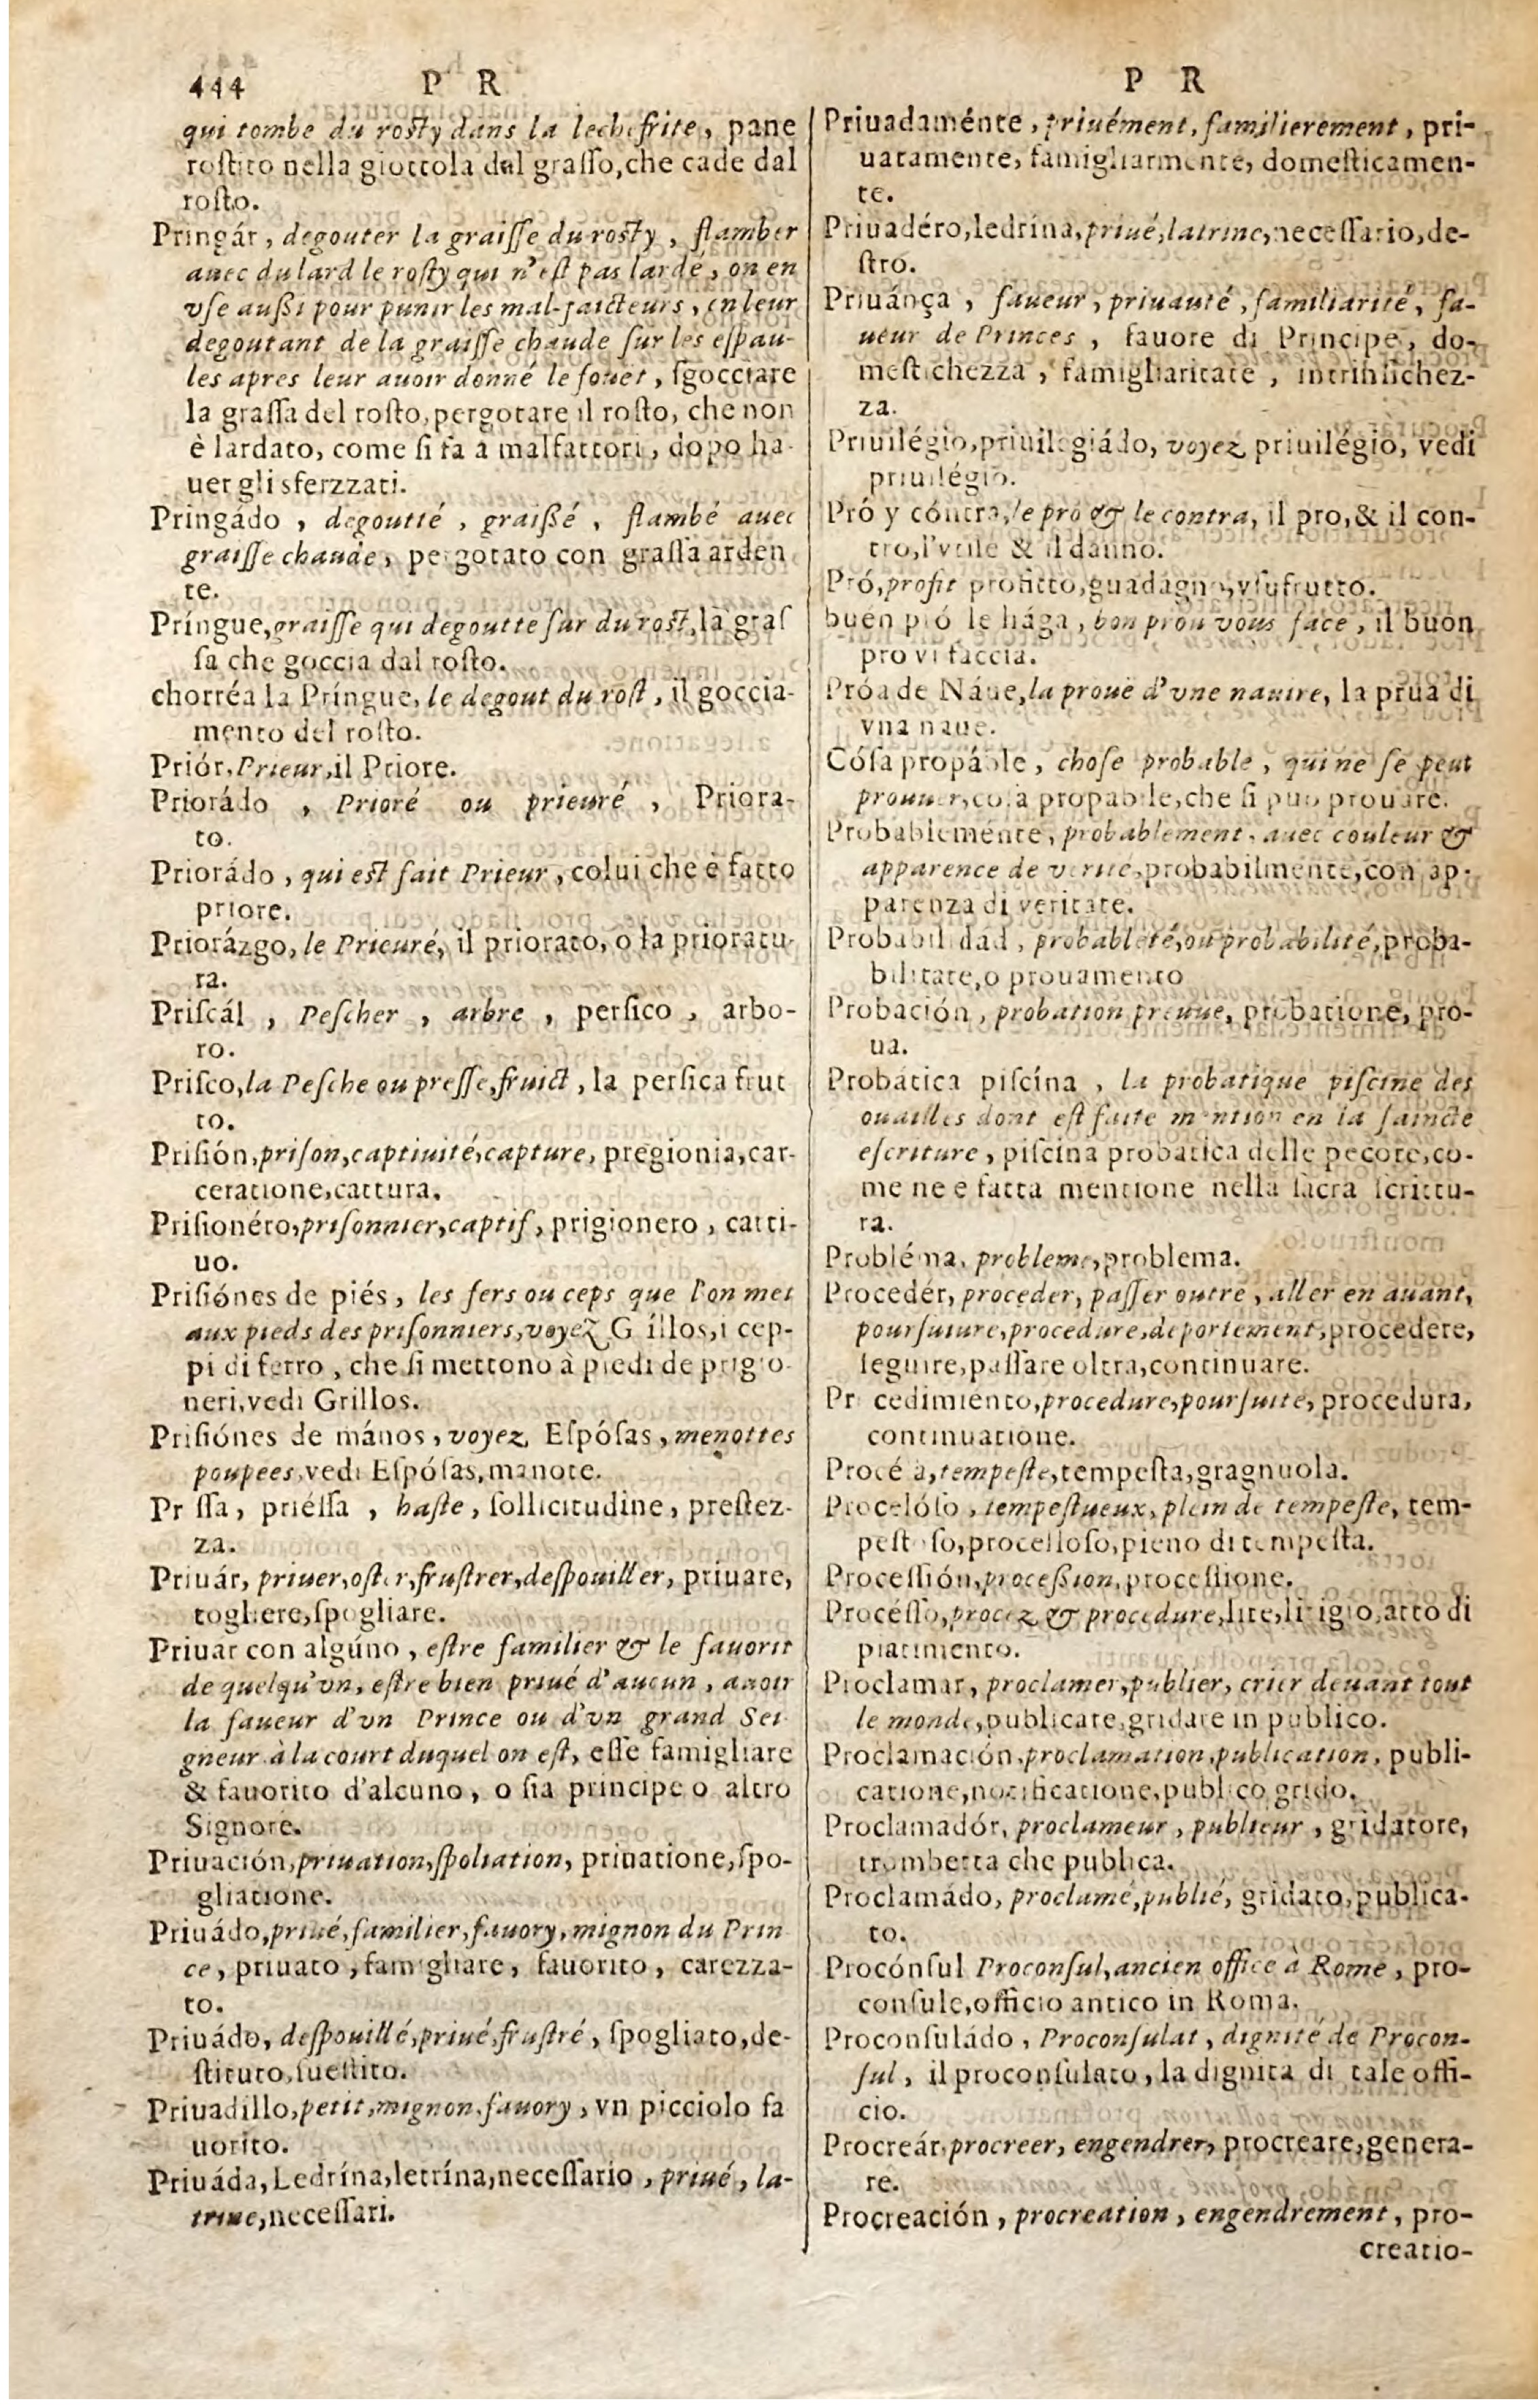 444 P R
qui tombe du rosty dans la lechefrite, pane
roſtito nella gioccola dal graſſo, che cade dal
roſto.
Pringár, degouter la graiſſe du rosty, flamber
auec du lard le roſty qui n'eſt pas lardé, on en
vſe außi pour punir les mal-faicteurs, en leur
degoutant de la graiſſe chaude ſur les eſpau-
les apres leur auoir donné le fouët, ſgocciare
la graſſa del roſto, pergotare il roſto, che non
è lardato, come ſi fa à malfattori, dopo ha-
uer gli sferzzati.
Pringádo, degoutté, graißé, flambé auec
graiſſe chaude, pergotato con graſſa arden
te.
Príngue, graiſſe qui degoutte ſur du rost, la graſ
ſa che goccia dal roſto.
chorréa la Príngue, le degout du roſt, il goccia-
mento del roſto.
Priór, Prieur, il Priore.
Priorádo, Prioré ou prieuré, Priora-
to.
Priorádo, qui est fait Prieur, colui che è fatto
priore.
Priorázgo, le Prieuré, il priorato, o la prioratu-
ra.
Priſcál, Peſcher, arbre, perſico, arbo-
ro.
Priſco, la Peſche ou preſſe, fruict, la perſica frut
to.
Priſión, priſon, captiuité, capture, pregionia, car-
ceratione, cattura.
Priſionéro, priſonnier, captif, prigionero, catti-
uo.
Priſiónes de piés, les fers ou ceps que l'on met
aux pieds des priſonniers, voyez G illos, i cep-
pi di ferro, che ſi mettono à piedi de prigio-
neri, vedi Grillos.
Priſiónes de mános, voyez Eſpóſas, menottes
poupees, vedi Eſpóſas, manote.
Pr ſſa, priéſſa, haſte, ſollicitudine, preſtez-
za.
Priuár, priuer, oſter, fruſtrer, deſpouiller, priuare,
togliere, ſpogliare.
Priuar con algúno, eſtre familier & le fauorit
de quelqu'vn, eſtre bien priué d'aucun, auoir
la faueur d'vn Prince ou d'vn grand Sei
gneur à la court duquel on eſt, eſſe famigliare
& fauorito d'alcuno, o ſia principe o altro
Signore.
Priuación, priuation, ſpoliation, priuatione, ſpo-
gliatione.
Priuádo, priué, familier, fauory, mignon du Prin
ce, priuato, famigliare, fauorito, carezza-
to.
Priuádo, deſpouillé, priué, fruſtré, ſpogliato, de-
ſtituto, ſueſtito.
Priuadillo, petit, mignon, fauory, vn picciolo fa
uorito.
Priuáda, Ledrína, letrína, neceſſario, priué, la-
trine, neceſſari.
P R
Priuadaménte, priuément, familierement, pri-
uatamente, famigliarmente, domeſticamen-
te.
Priuadéro, ledrína, priué, latrine, neceſſario, de-
ſtro.
Priuánça, faueur, priuauté, familiarité, fa-
ueur de Princes, fauore di Principe, do-
meſtichezza, famigliaritate, intrinſichez-
za.
Priuilégio, priuilegiádo, voyez priuilégio, vedi
priuilégio.
Pró y cóntra, le pro & le contra, il pro, & il con-
tro, l'vtile & il danno.
Pró, profit profitto, guadagno, vſufrutto.
buén pró le hága, bon prou vous face, il buon
pro vi faccia.
Próa de Náue, la proue d'vne nauire, la prua di
vna naue.
Cóſa propáble, choſe probable, qui ne ſe peut
prouuer, coſa propabile, che ſi può prouare.
Probableménte, probablement, auec couleur &
apparence de verité, probabilmente, con ap-
parenza di veritate.
Probabilidád, probableté, ou probabilité, proba-
bilitate, o prouamento
Probación, probation preuue, probatione, pro-
ua.
Probática piſcína, la probatique piſcine des
ouailles dont eſt faite mention en la ſaincte
eſcriture, piſcina probatica delle pecore, co-
me ne è fatta mentione nella ſacra ſcrittu-
ra.
Probléma, probleme, problema.
Procedér, proceder, paſſer outre, aller en auant,
pourſuiure, procedure, deportement, procedere,
ſeguire, paſſare oltra, continuare.
Pr cedimiento, procedure, pourſuite, procedura,
continuatione.
Procé a, tempeſte, tempeſta, gragnuola.
Procelóſo, tempeſtueux, plein de tempeſte, tem-
peſt ſo, procelloſo, pieno di tempeſta.
Proceſſión, proceßion, proceſſione.
Procéſſo, procez & procedure, lite, litigio, atto di
piatimento.
Proclamar, proclamer, publier, crier deuant tout
le monde, publicare, gridare in publico.
Proclamación, proclamation, publication, publi-
catione, notificatione, publico grido.
Proclamadór, proclameur, publieur, gridatore,
trombetta che publica.
Proclamádo, proclamé, publié, gridato, publica-
to.
Procónſul Proconſul, ancien office à Rome, pro-
conſule, officio antico in Roma.
Proconſuládo, Proconſulat, dignité de Procon-
ſul, il proconſulato, la dignita di tale offi-
cio.
Procreár, procreer, engendrer, procreare, genera-
re.
Procreación, procreation, engendrement, pro-
creatio-